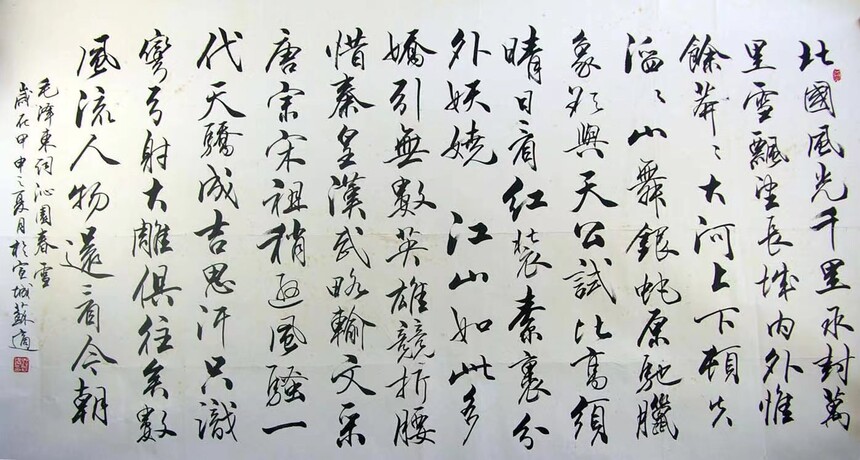 北國風光千里氷封萬
里雪飄望長城內外惟
餘莽々大河上下頓失
滔々山舞銀蛇原馳臘
象欲與天公試比高須
晴日看紅裝素裹分
外妖嬈 江山如此多
嬌引無數英雄競折腰
惜秦皇漢武略輸文采
唐宗宋祖稍遜風騷一
代天驕成吉思汗只識
彎弓射大雕俱往矣數
風流人物還々看今朝
毛澤東詞沁園春雪
歲在甲申之夏月於宣城蘇適